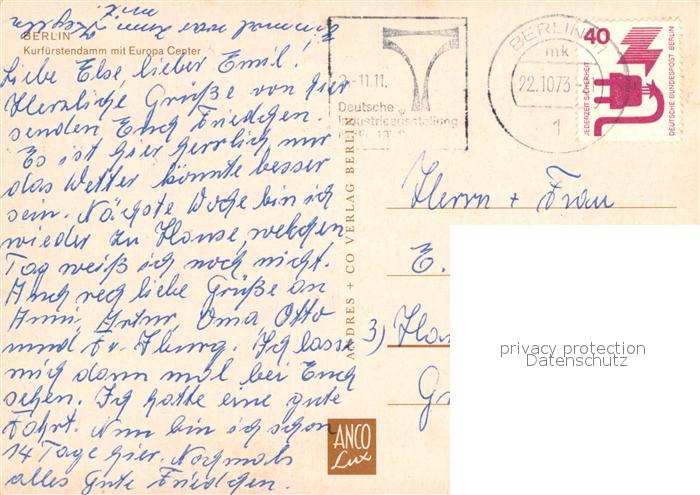 BERLIN
Kurfürstendamm mit Europa Center
Liebe Else, lieber Emil!
Herzliche Grüße von hier
senden Euch Friedchen.
Es ist hier herrlich, nur
das Wetter könnte besser
sein. Nächste Woche bin ich
wieder zu Hause, welchen
Tag weiß ich noch nicht.
Auch rech liebe Grüße an
Anni, Artur, Oma, Otto
und Iburg. Ich lasse
mich dann mal bei Euch
sehen. Ich hatte eine gute
Fahrt. Nun bin ich schon
14 Tage hier. Nochmals
alles Gute Friedchen.
ANDRES + CO VERLAG BERLIN
ANCO
Lux
-11.11.
Deutsche
Industrieausstellung
BERLIN
mk
22.10.73
1
40
JEDERZEIT SICHERHEIT
DEUTSCHE BUNDESPOST BERLIN
Herrn + Frau
E.
3)
privacy protection
Datenschutz